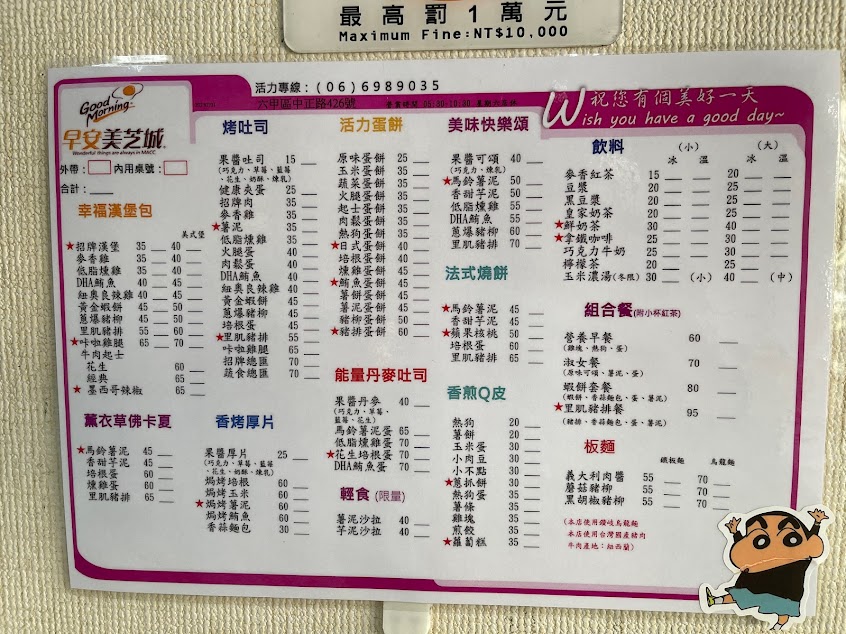 最高罰1萬元
Maximum Fine:NT$10,000
活力專線：(06)6989035
六甲區中正路426號
Good Morning
早安美芝城
Wonderful things are always in MACC
祝您有個美好一天
Wish you have a good day~
外帶： 內用桌號：
合計：
幸福漢堡包
美式堡
★招牌漢堡 35 40
麥香雞 35 40
低脂燻雞 35 40
DHA鮪魚 40 45
紐奧良辣雞 40 45
黃金蝦餅 45 50
蔥爆豬柳 45 50
里肌豬排 55 60
★咔啦雞腿 65 70
牛肉起士
花生 60
經典 65
★墨西哥辣椒 65
薰衣草佛卡夏
★馬鈴薯泥 45
香甜芋泥 45
培根蛋 60
燻雞蛋 60
里肌豬排 65
烤吐司
果醬吐司 15
(巧克力、草莓、藍莓、花生、奶酥、煉乳)
健康夾蛋 25
招牌肉 35
麥香雞 35
★薯泥 35
低脂燻雞 35
火腿蛋 40
肉鬆蛋 40
DHA鮪魚 40
紐奧良辣雞 40
黃金蝦餅 45
蔥爆豬柳 45
培根蛋 45
★里肌豬排 55
咔啦雞腿 65
招牌總匯 70
蔬食總匯 70
香烤厚片
果醬厚片 25
(巧克力、草莓、藍莓、花生、奶酥、煉乳)
焗烤培根 60
焗烤玉米 60
★焗烤薯泥 60
焗烤鮪魚 60
香蒜麵包 30
活力蛋餅
原味蛋餅 25
玉米蛋餅 35
蔬菜蛋餅 35
火腿蛋餅 35
起士蛋餅 35
肉鬆蛋餅 35
熱狗蛋餅 35
★日式蛋餅 40
培根蛋餅 40
燻雞蛋餅 45
★鮪魚蛋餅 45
薯餅蛋餅 45
薯泥蛋餅 45
豬柳蛋餅 50
★豬排蛋餅 60
能量丹麥吐司
果醬丹麥 40
(巧克力、草莓、藍莓、花生)
馬鈴薯泥蛋 65
低脂燻雞蛋 70
★花生培根蛋 70
DHA鮪魚蛋 70
輕食(限量)
薯泥沙拉 40
芋泥沙拉 40
美味快樂頌
果醬可頌 40
(巧克力、草莓、藍莓、花生、煉乳)
★馬鈴薯泥 50
香甜芋泥 50
低脂燻雞 55
DHA鮪魚 55
蔥爆豬柳 60
里肌豬排 70
法式燒餅
★馬鈴薯泥 45
香甜芋泥 45
★蘋果核桃 50
培根蛋 60
里肌豬排 65
香煎Q皮
熱狗 20
薯餅 20
玉米蛋 30
小肉豆 30
小不點 30
★蔥抓餅 30
熱狗蛋 35
薯條 35
雞塊 35
煎餃 35
★蘿蔔糕 35
飲料
(小) (大)
冰 溫 冰 溫
麥香紅茶 15 20
豆漿 20 25
黑豆漿 20 25
皇家奶茶 20 25
★鮮奶茶 30 40
★拿鐵咖啡 25 30
巧克力牛奶 25 30
檸檬茶 20 25
玉米濃湯(冬限) 30 (小) 40 (中)
組合餐(附小杯紅茶)
營養早餐 60
(雞塊、熱狗、蛋)
淑女餐 70
(原味可頌、薯泥、蛋)
蝦餅套餐 80
(蝦餅、香蒜麵包、蛋、薯泥)
★里肌豬排餐 95
(豬排、香蒜麵包、蛋、薯泥)
板麵
鐵板麵 烏龍麵
義大利肉醬 55 70
蘑菇豬柳 55 70
黑胡椒豬柳 55 70
(本店使用讚岐烏龍麵
本店使用台灣國產豬肉
牛肉產地：紐西蘭)